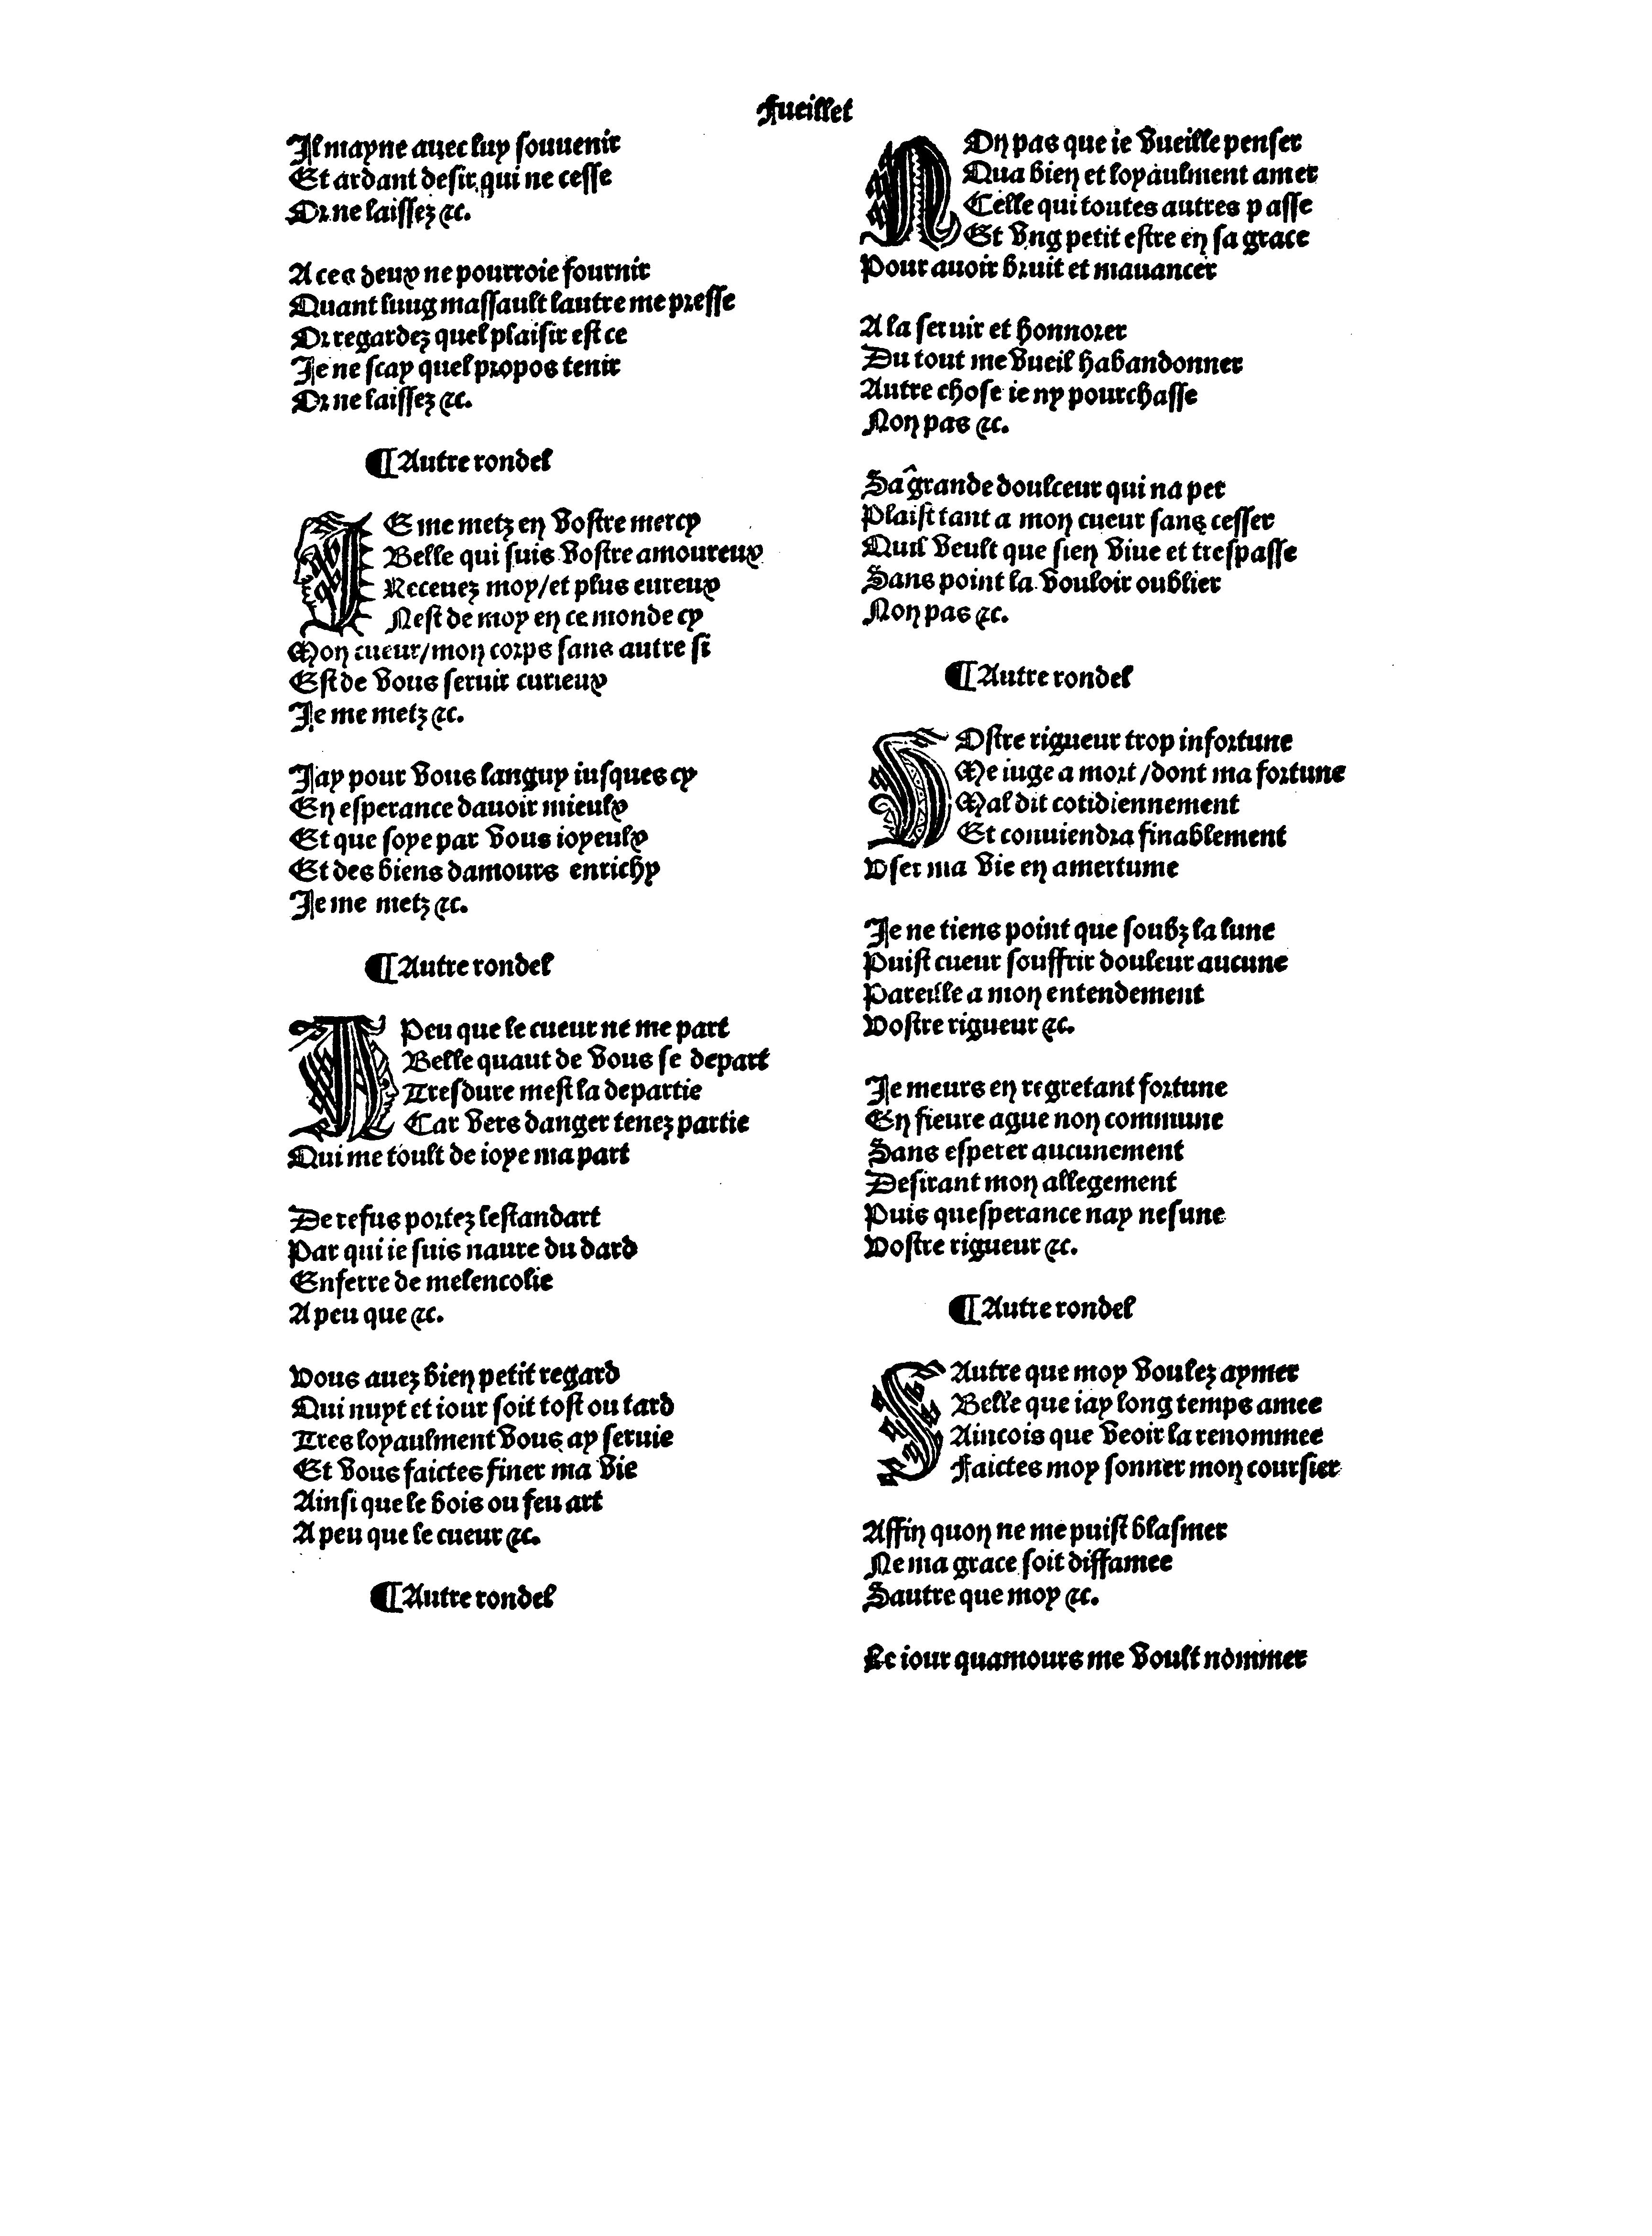 Fueillet
Il mayne auec luy souuenir
Et ardant desir qui ne cesse
Or ne laissez &c.
A ces deux ne pourroie fournir
Quant luug massault lautre me presse
Or regardez quel plaisir est ce
Je ne scay quel propos tenir
Or ne laissez &c.
¶Autre rondel
JE me metz en vostre mercy
Belle qui suis vostre amoureux
Receuez moy/et plus eureux
Nest de moy en ce monde cy
Mon cueur/mon corps sans autre si
Est de vous seruir curieux
Je me metz &c.
Jay pour vous languy iusques cy
En esperance dauoir mieulx
Et que soye par vous ioyeulx
Et des biens damours enrichy
Je me metz &c.
¶Autre rondel
A Peu que le cueur ne me part
Belle quaut de vous se depart
Tresdure mest la departie
Car vers danger tenez partie
Qui me toult de ioye ma part
De refus portez lestandart
Par qui ie suis naure du dard
Enferre de melencolie
A peu que &c.
Vous auez bien petit regard
Qui nuyt et iour soit tost ou tard
Tres loyaulment vous ay seruie
Et vous faictes finer ma vie
Ainsi que le bois ou feu art
A peu que le cueur &c.
¶Autre rondel
NOn pas que ie vueille penser
Qua bien et loyaulment amer
Celle qui toutes autres passe
Et vng petit estre en sa grace
Pour auoir bruit et mauancer
A la seruir et honnorer
Du tout me vueil habandonner
Autre chose ie ny pourchasse
Non pas &c.
Sa grande doulceur qui na per
Plaist tant a mon cueur sans cesser
Quil veult que sien viue et trespasse
Sans point la vouloir oublier
Non pas &c.
¶Autre rondel
VOstre rigueur trop infortune
Me iuge a mort/dont ma fortune
Mal dit cotidiennement
Et conuiendra finablement
Vser ma vie en amertume
Je ne tiens point que soubz la lune
Puist cueur souffrir douleur aucune
Pareille a mon entendement
Vostre rigueur &c.
Je meurs en regretant fortune
En fieure ague non commune
Sans esperer aucunement
Desirant mon allegement
Puis quesperance nay nesune
Vostre rigueur &c.
¶Autre rondel
SAutre que moy voulez aymer
Belle que iay long temps amee
Aincois que veoir la renommee
Faictes moy sonner mon coursier
Affin quon ne me puist blasmer
Ne ma grace soit diffamee
Sautre que moy &c.
Le iour quamours me voult nommer